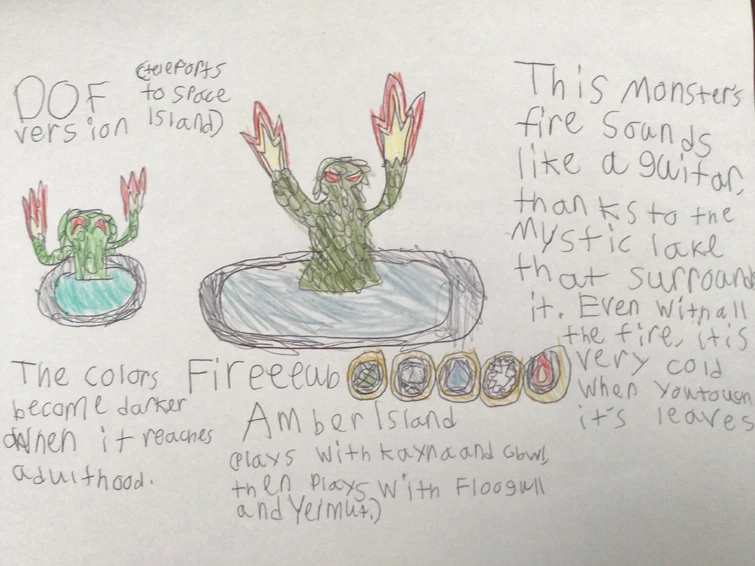 DOF
version
(teleports
to space
Island)
This monsters
fire sounds
like a guitar,
thanks to the
mystic lake
that surround
it. Even with all
the fire, it is
very cold
when you touch
it's leaves
The colors
become darker
when it reaches
adulthood.
Fireeeub
Amber Island
(Plays with Kayna and Gbwl,
then plays with Floogull
and Yelmut.)